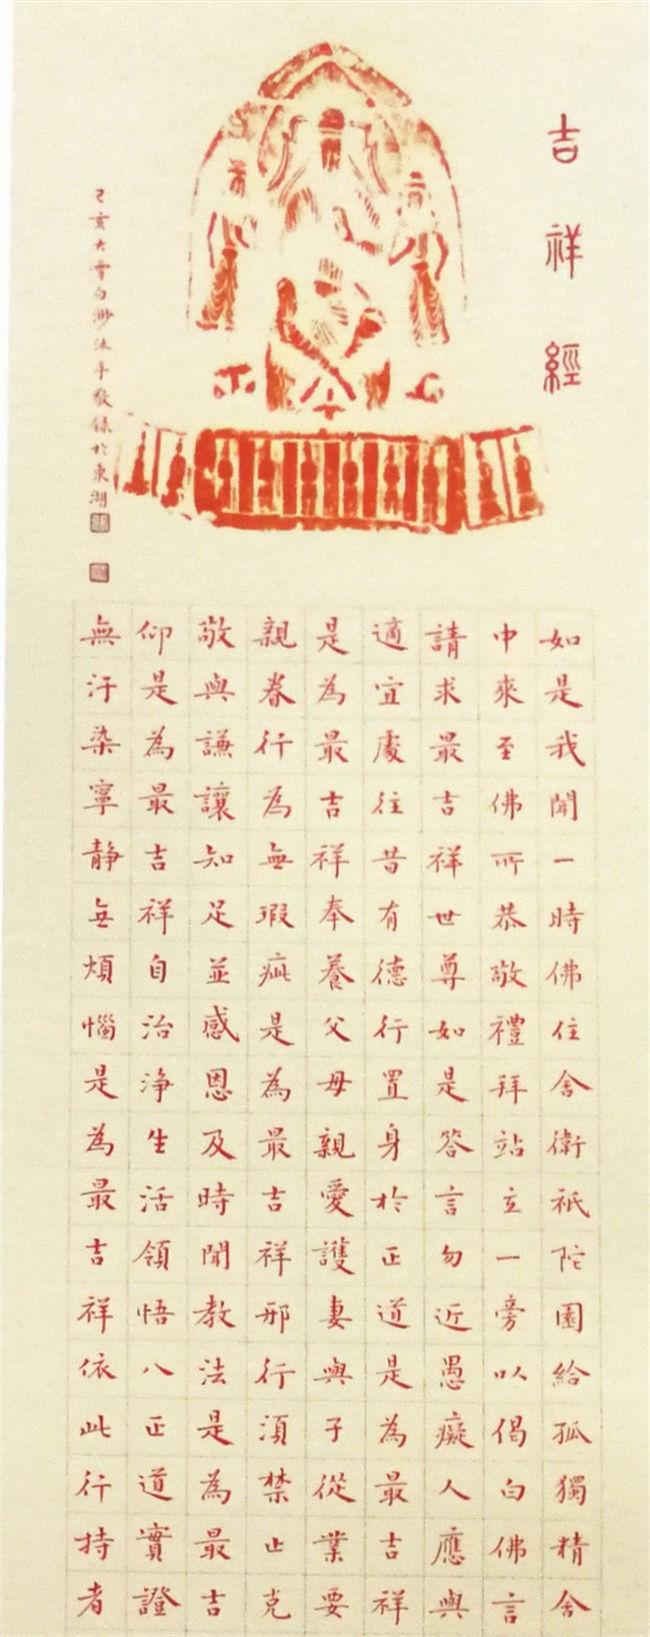 吉祥經
如是我聞一時佛住舍衛祇陀園給孤獨精舍
中來至佛所恭敬禮拜站立一旁以偈白佛言
請求最吉祥世尊如是答言勿近愚癡人應與
適宜處往昔有德行置身於正道是為最吉祥
是為最吉祥奉養父母親愛護妻與子從業要
親眷行為無瑕疵是為最吉祥邪行須禁止克
敬與謙讓知足並感恩及時聞教法是為最吉
仰是為最吉祥自治淨生活領悟八正道實證
無汙染寧靜無煩惱是為最吉祥依此行持者
己亥大雪白渺沐手敬錄於東湖